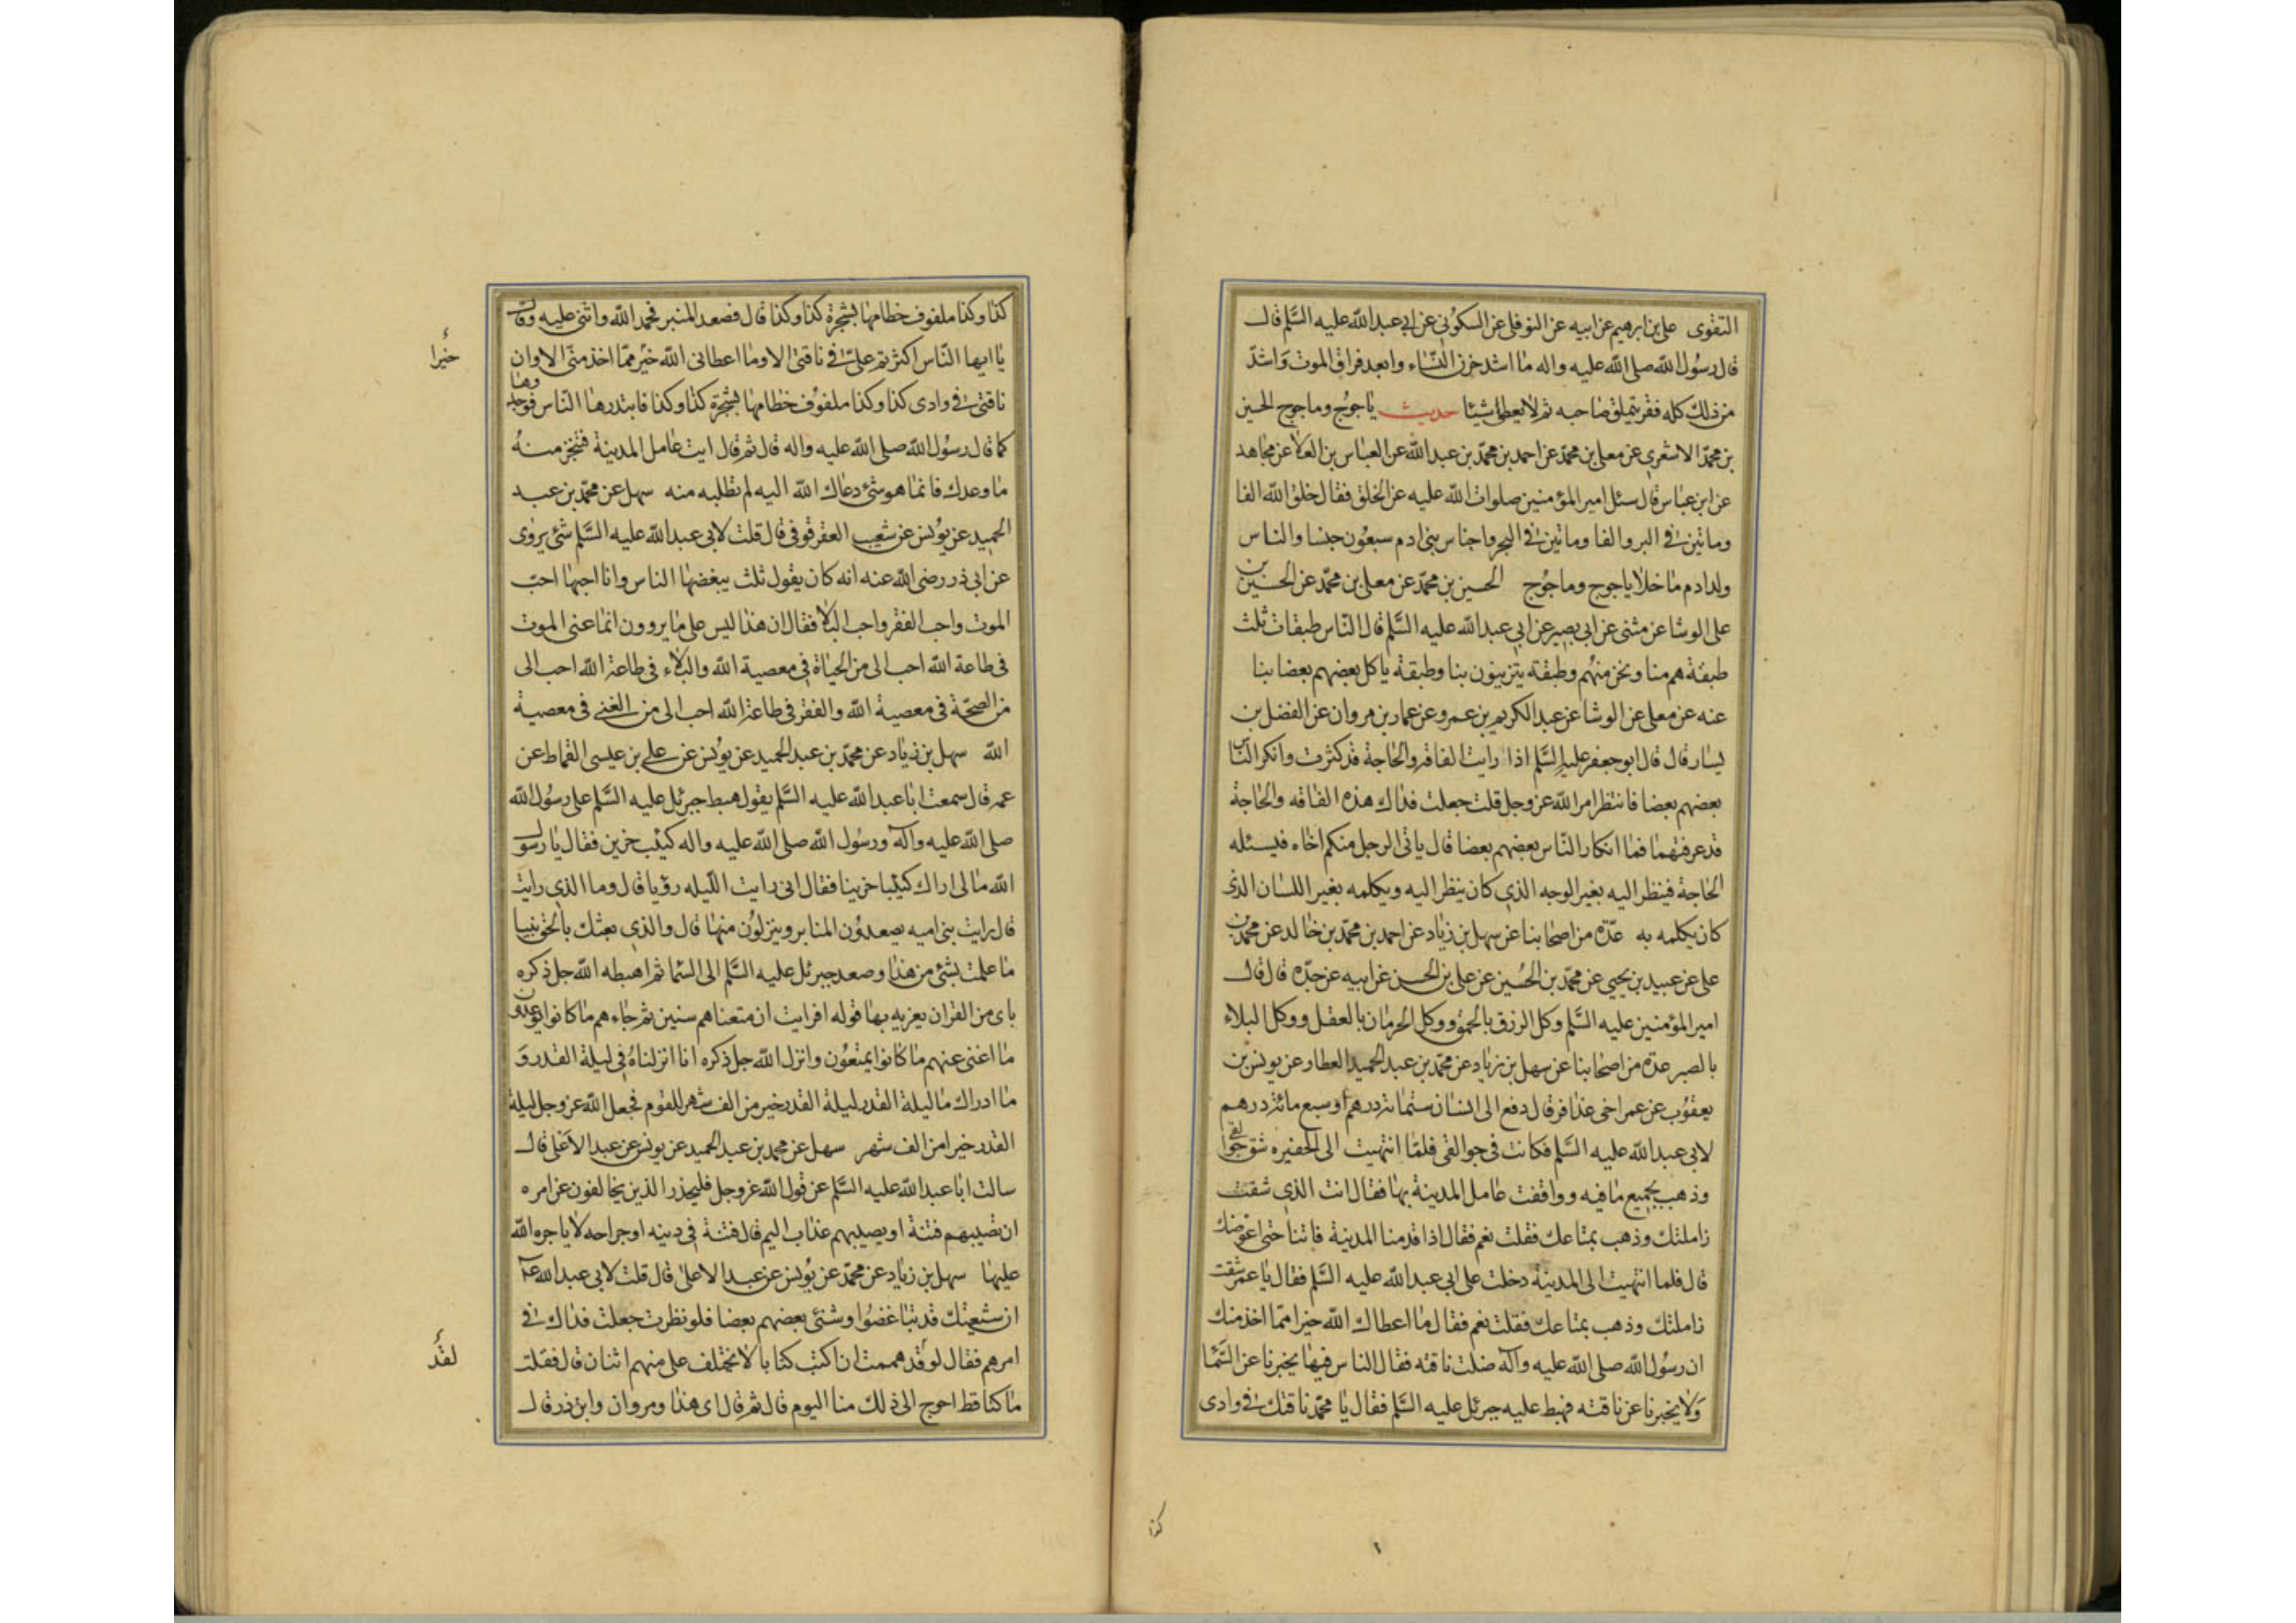 التقوى علي بن ابرهيم عن ابيه عن النوفلي عن السكوني عن ابي عبد الله عليه السلم قال
قال رسول الله صلى الله عليه واله ما اشد حزن النساء وابعد فراق الموت واشد
من ذلك كله فقر يتملق صاحبه ثم لا يعطى شيئا حديث ياجوج وماجوج الحسين
بن محمد الاشعري عن معلى بن محمد عن احمد بن محمد بن عبد الله عن العباس بن العلا عن مجاهد
عن ابن عباس قال سئل امير المؤمنين صلوات الله عليه عن الخلق فقال خلق الله الفا
وماتين في البر والفا وماتين في البحر واجناس بني ادم سبعون جنسا والناس
ولد ادم ما خلا ياجوج وماجوج الحسين بن محمد عن معلى بن محمد عن الحسين بن
على الوشا عن مثنى عن ابي بصير عن ابي عبد الله عليه السلم قال الناس طبقات ثلث
طبقة هم منا ونحن منهم وطبقة يتزينون بنا وطبقة ياكل بعضهم بعضا بنا
عنه عن معلى عن الوشا عن عبد الكريم بن عمرو عن عمار بن مروان عن الفضل بن
يسار قال قال ابو جعفر عليه السلم اذا رايت الفاقة والحاجة قد كثرت وانكر الناس
بعضهم بعضا فانتظر امر الله عز وجل قلت جعلت فداك هذه الفاقه والحاجة
قد عرفتهما فما انكار الناس بعضهم بعضا قال ياتى الرجل منكم اخاه فيسئله
الحاجة فينظر اليه بغير الوجه الذي كان ينظر اليه ويكلمه بغير اللسان الذى
كان يكلمه به عدة من اصحابنا عن سهل بن زياد عن احمد بن محمد بن خالد عن محمد بن
على عن عبيد بن يحيى عن محمد بن الحسين عن على بن الحسن عن ابيه عن جده قال قال
امير المؤمنين عليه السلم وكل الرزق بالحمق ووكل الحرمان بالعقل ووكل البلاء
بالصبر عدة من اصحابنا عن سهل بن زياد عن محمد بن عبد الحميد العطار عن يونس بن
يعقوب عن عمر اخى عذافر قال دفع الى انسان ستمائة درهم او سبع مائة درهم
لابى عبد الله عليه السلم فكانت في جوالقى فلما انتهيت الى الحفيره شق جوالقى
وذهب بجميع ما فيه ووافقت عامل المدينة بها فقال انت الذي شقت
زاملتك وذهب بمتاعك فقلت نعم فقال اذا قدمنا المدينة فاتنا حتى اعوضك
قال فلما انتهيت الى المدينة دخلت على ابى عبد الله عليه السلم فقال يا عمر شقت
زاملتك وذهب بمتاعك فقلت نعم فقال ما اعطاك الله خيرا مما اخذ منك
ان رسول الله صلى الله عليه وآله ضلت ناقته فقال الناس فيها يخبرنا عن السما
ولا يخبرنا عن ناقته فهبط عليه جبرئل عليه السلم فقال يا محمد ناقتك في وادى
كذا
كذا وكذا ملفوف خطامها بشجرة كذا وكذا قال فصعد المنبر فحمد الله واثنى عليه وقال
يا ايها الناس اكثرتم علي في ناقتى الا وما اعطانى الله خير مما اخذ منى الا وان
خيرا
ناقتى في وادى كذا وكذا ملفوف خطامها بشجرة كذا وكذا فابتدرها الناس فوجدوها
كما قال رسول الله صلى الله عليه واله قال ثم قال ايت عامل المدينة فتنجز منه
ما وعدك فانما هو شئ دعاك الله اليه لم تطلبه منه سهل عن محمد بن عبد
الحميد عن يونس عن شعيب العقرقوفى قال قلت لابى عبد الله عليه السلم شئ يروى
عن ابى ذر رضى الله عنه انه كان يقول ثلث يبغضها الناس وانا احبها احب
الموت واحب الفقر واحب البلا فقال ان هذا ليس على ما يروون انما عنى الموت
فى طاعة الله احب الى من الحياة في معصية الله والبلاء فى طاعة الله احب الى
من الصحة فى معصية الله والفقر فى طاعة الله احب الى من الغنى فى معصية
الله سهل بن زياد عن محمد بن عبد الحميد عن يونس عن على بن عيسى القماط عن
عمه قال سمعت ابا عبد الله عليه السلم يقول هبط جبرئل عليه السلم على رسول الله
صلى الله عليه وآله ورسول الله صلى الله عليه واله كئيب حزين فقال يا رسول
الله ما لى اراك كئيبا حزينا فقال انى رايت الليله رؤيا قال وما الذي رايت
قال رايت بنى اميه يصعدون المنابر وينزلون منها قال والذي بعثك بالحق نبيا
ما علمت بشئ من هذا وصعد جبرئل عليه السلم الى السما ثم اهبطه الله جل ذكره
باى من القران يعزيه بها قوله افرايت ان متعناهم سنين ثم جاءهم ما كانوا يوعدون
ما اغنى عنهم ما كانوا يمتعون وانزل الله جل ذكره انا انزلناه في ليلة القدر و
ما ادراك ما ليلة القدر ليلة القدر خير من الف شهر للقوم فجعل الله عز وجل ليلة
القدر خيرا من الف شهر سهل عن محمد بن عبد الحميد عن يونس عن عبد الاعلى قال
سالت ابا عبد الله عليه السلم عن قول الله عز وجل فليحذر الذين يخالفون عن امره
ان تصيبهم فتنة او يصيبهم عذاب اليم قال فتنة في دينه او جراحه لا ياجره الله
عليها سهل بن زياد عن محمد عن يونس عن عبد الاعلى قال قلت لابى عبد الله ع
ان شيعتك قد تباغضوا وشنئ بعضهم بعضا فلو نظرت جعلت فداك في
امرهم فقال لو قد هممت ان اكتب كتابا لا يختلف على منهم اثنان قال فقلت
لقد
ما كنا قط احوج الى ذلك منا اليوم قال ثم قال اى هذا ومروان وابن ذر قال